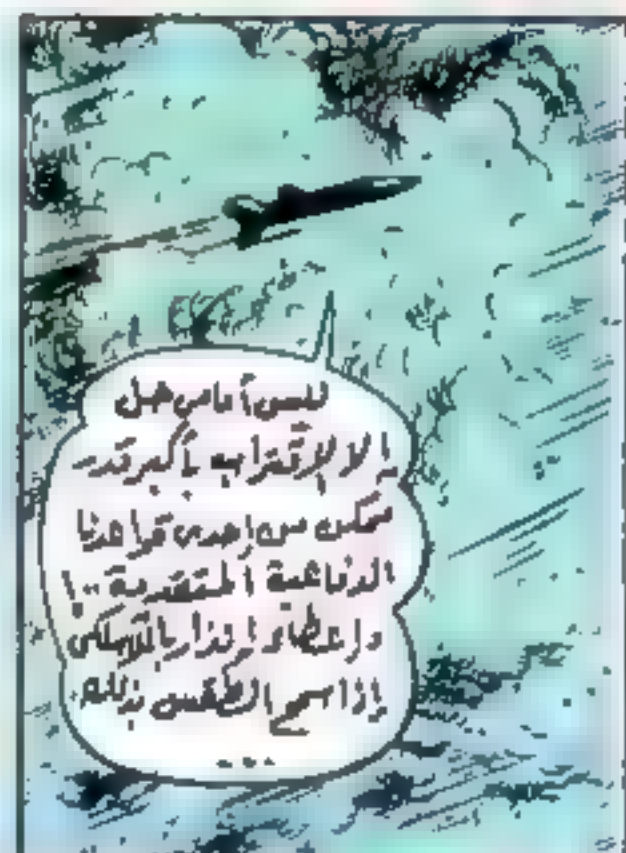 ليس أمامي حل
إلا الإقتراب بأكبر قدر
ممكن من إحدى قواعدنا
الدفاعية المتقدمة ..!
وإعطاء إنذار بالاسلكى
إذا سمح الطقس بذلك
...